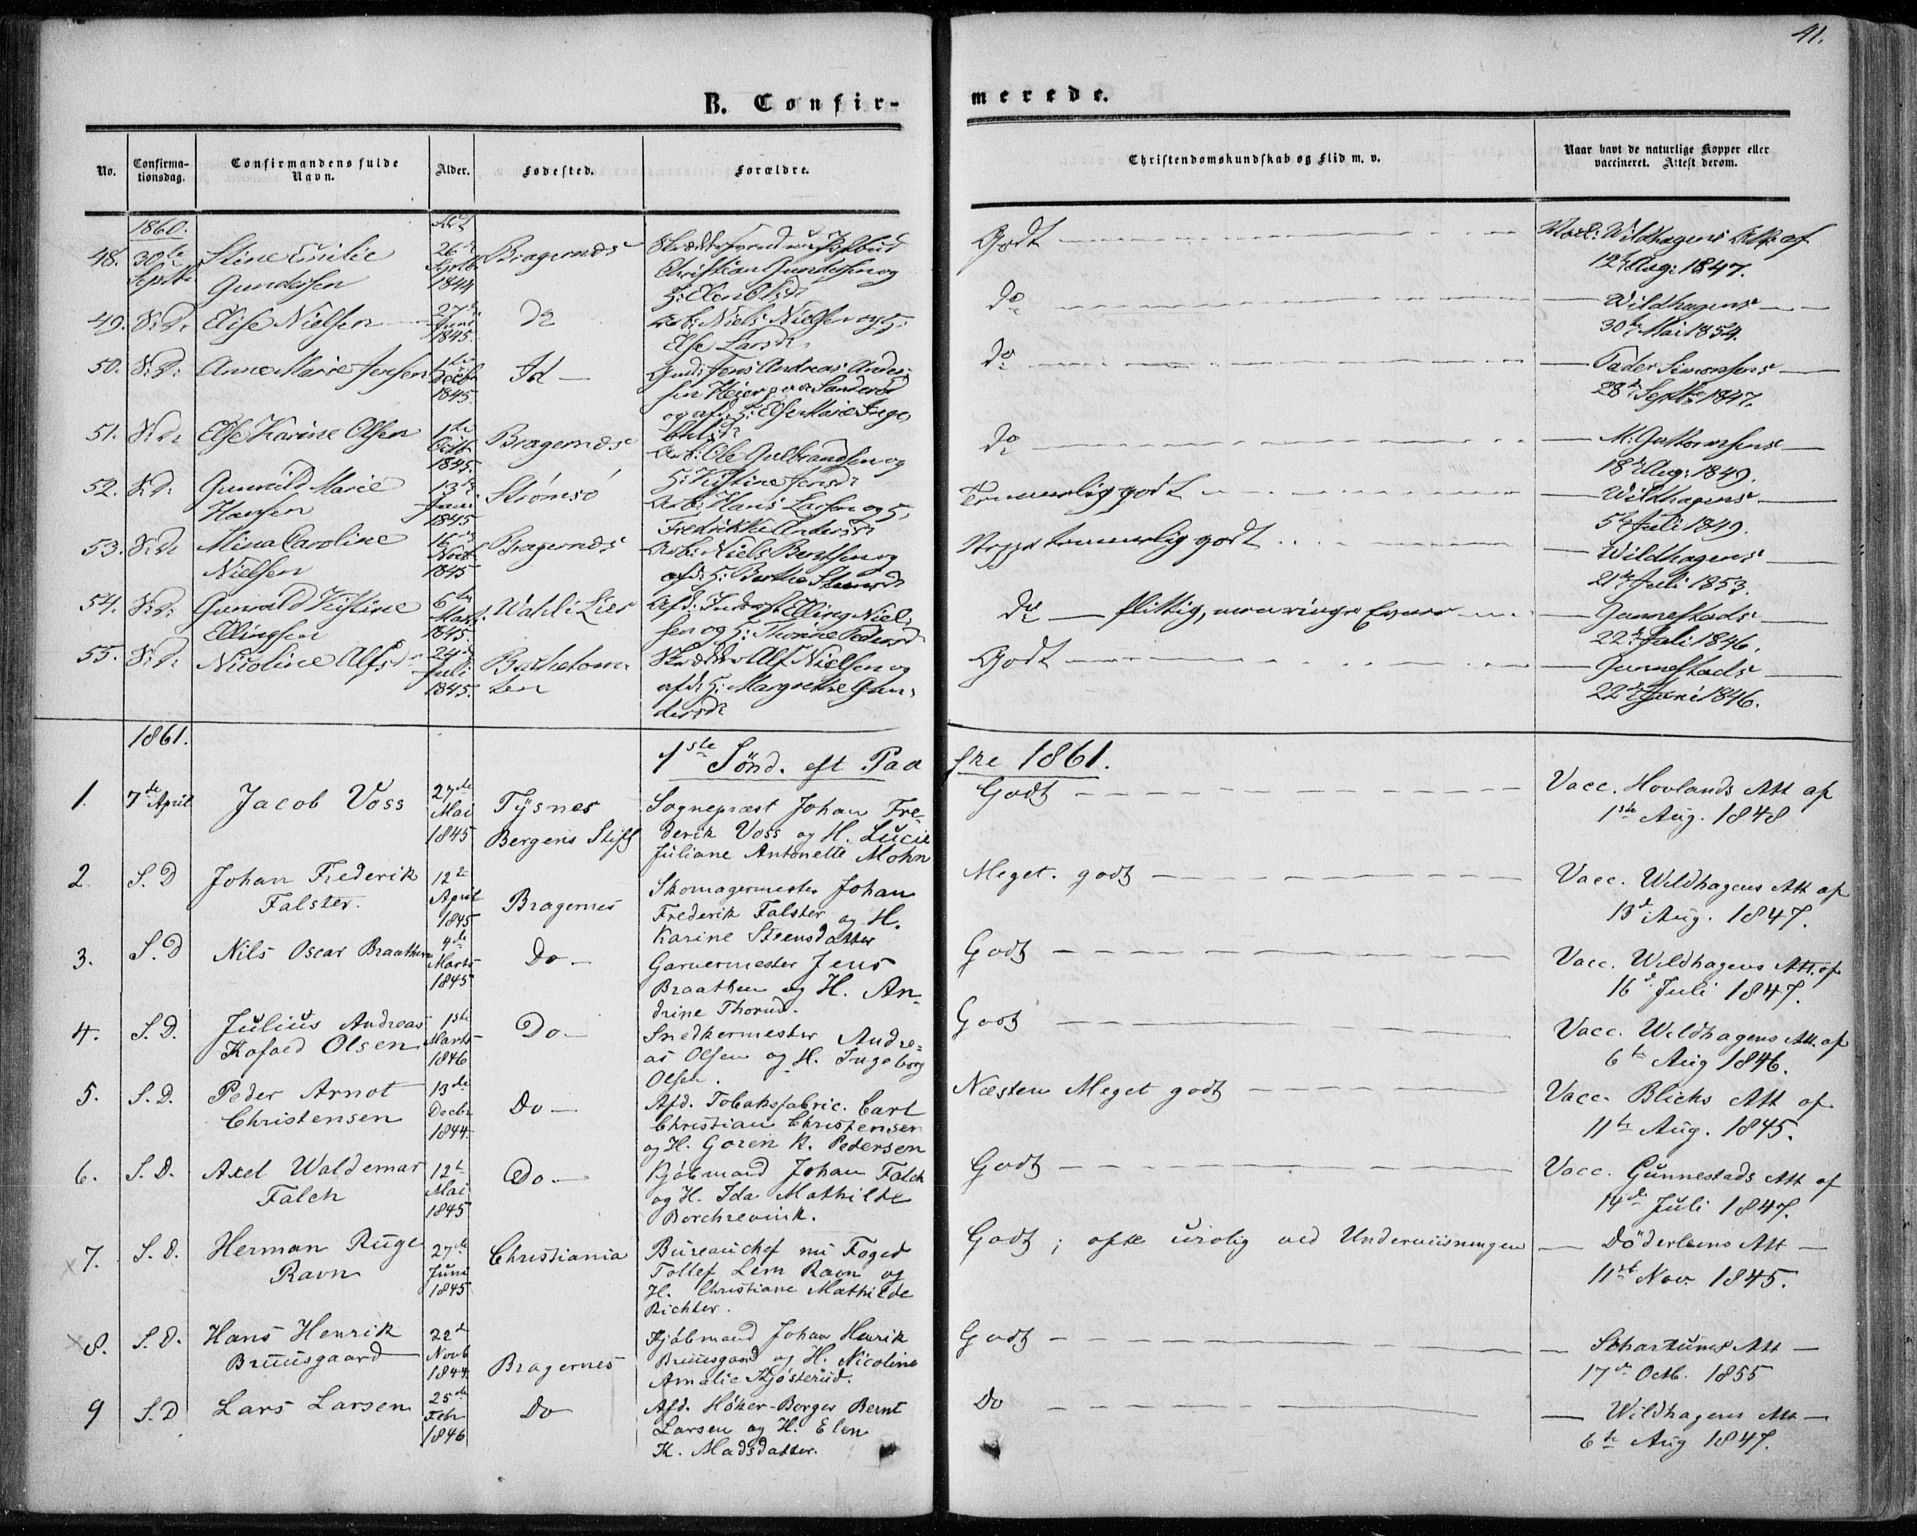 41.
B. Confir-
merede.
No.
Confirma-
tionsdag.
Confirmandens fulde
Navn.
Alder.
Fødested.
Forældre.
Christendomskundskab og Flid m. v.
Naar havt de naturlige Kopper eller
vaccineret. Attest derom.
1860.
48. 30te Septb: Stine Emilie Gundersen 26de Septb: 1844 Bragernæs
Christian Gundersen og
H: Elen Olsd:
Godt
Wildhagens Att: af
12te Aug: 1847.
49. S: D: Elise Nielsen 27de Juni 1845. Do
Arb: Niels Nielsen og H:
Else Larsd:
Do
Wildhagens
30te Mai 1854.
50. S: D: Anne Marie Jensen 1ste Decb: 1845 Id
Jens Andreas Ander-
sen
og afd: H: Else Marie Inge-
Do
Simonsens
28de Septb: 1847.
51. S: D: Else Karine Olsen 1ste Octb 1845. Bragernæs
Arb: Ole Gulbrandsen og
H: Kistine Jensd:
Do
M: Guttormsens
18de Aug: 1849.
52. S: D: Gunvald Marie Hansen 13de 1845 Strømsø
Arb: Hans Larsen og H:
Fredrikke Andersd:
Temmelig godt
Wildhagens
5te Juli 1849.
53. S: D: Mina Caroline Nielsen 16de Novb 1845 Bragernæs
Arb: Niels Berntsen og
afd: H: Berthe
temmelig godt
Wildhagens
21de Juli 1853.
54. S: D: Gunvald Kistine Ellingsen 6te Marts 1845. i Lier
Afd: Elling Niel-
sen og H: Thorine Pedersd:
Do flittig, men ringe Evner
Gunnestads
22de Juli 1846.
55. S: D: Nicoline Alfsd: 24de Juli 1845.
Alf Nielsen og
afd: H: Margrethe Gun-
dersd:
Godt
Gunnestads
22de Juni 1846.
1861.
1ste Sønd. eft Paa
ske 1861.
1. 7de April Jacob Voss 27de Mai 1845 Tysnes Bergens Stift
Sognepræst Johan Fre-
derik Voss og H. Lucie
Juliane Antonette Mohn
Godt
Vacc. Hovlands Att af
1ste Aug. 1848
2 S. D Johan Frederik Falster. 12te April 1845 Bragernes
Skomagermester Johan
Frederik Falster og H.
Karine Steensdatter
Meget godt
Vacc. Wildhagens Att af
13de Aug. 1847.
3. S. D Nils Oscar Braathen 4de Marts 1845 Do
Garvermester Jens
Braathen og H. An-
drine Thorud.
Godt
Vacc. Wildhagens Att. af
16de Juli 1847.
4. S. D. Julius Andreas Kofoed Olsen 1ste Marts 1846 Do
Snedkermester Andre-
as Olsen og H. Ingeborg
Olsen.
Godt
Vacc. Wildhagens Att. af
6te Aug 1846.
5. S. D. Peder Arnot Christensen 13de Decbr 1844. Do
Afd. Tobaksfabric. Carl
Christian Christensen
og H. Goren K. Pedersen
Næsten Meget godt
Vacc. Blichs Att af
11te Aug. 1845.
6. S. D. Axel Waldemar Falch 12te Mai 1845 Do
Kjøbmand Johan Falch
og H. Ida Mathilde
Borchrevink.
Godt
Vacc. Gunnestads Att af
14de Juli 1847.
x 7. S. D. Herman Ruge Ravn 27de Juni 1845 Christiania
Bureauchef nu Foged
Tollef Lem Ravn og
H. Christiane Mathilde
Richter.
Godt; ofte urolig ved Underviisningen
Döderleins Att
11te Nov. 1845.
x 8. S. D. Hans Henrik Bruusgaard 22de Novb 1844 Bragernes
Kjøbmand Johan Henrik
Bruusgaard og H. Nicoline
Amalie Kjøsterud.
Godt
Schartums Att
17de Octb. 1855
9 S. D Lars Larsen 25de Febr 1846 Do
Afd. Høker-Borger Bernt
Larsen og H. Elen
K. Madsdatter.
Do
Wildhagens Att
6te Aug 1847.